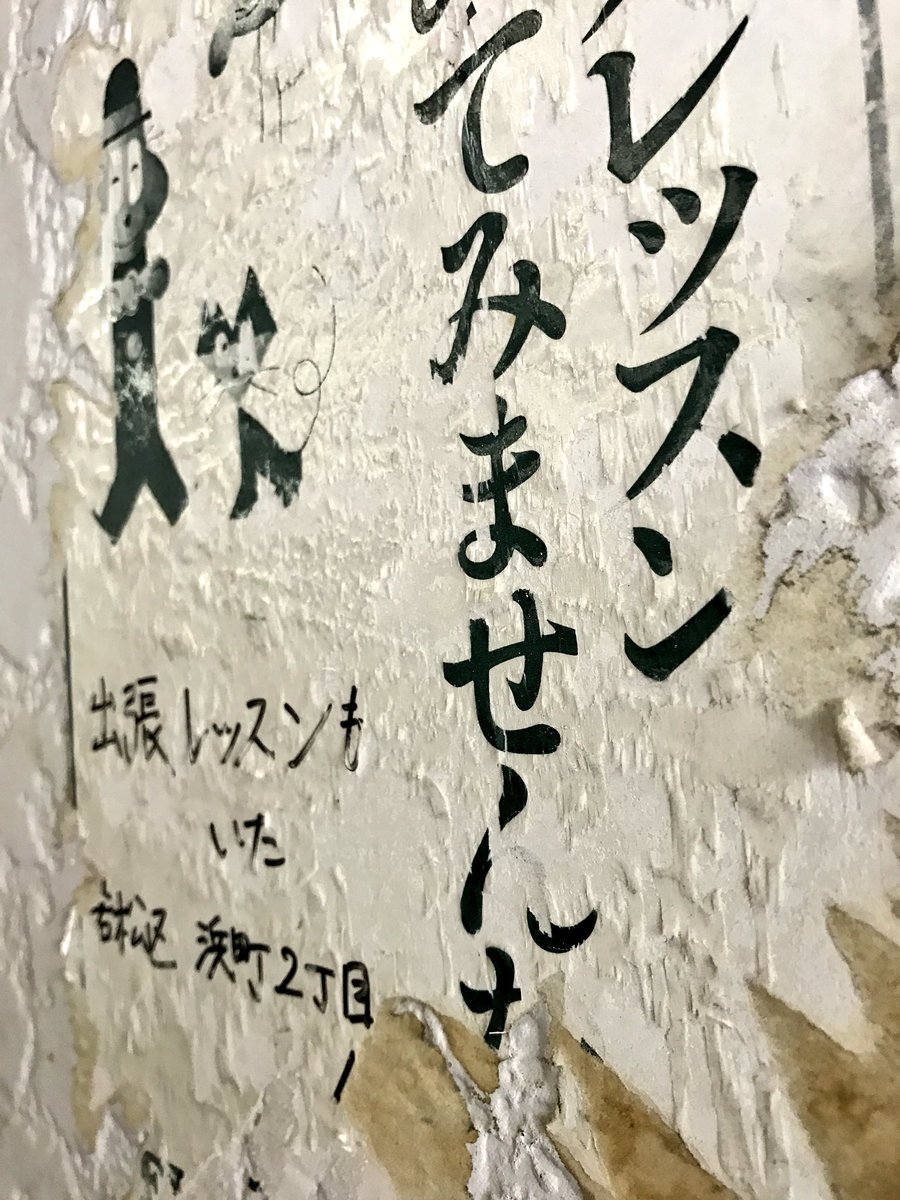 レッスン
てみませんか
出張レッスンも
いた
浜町2丁目